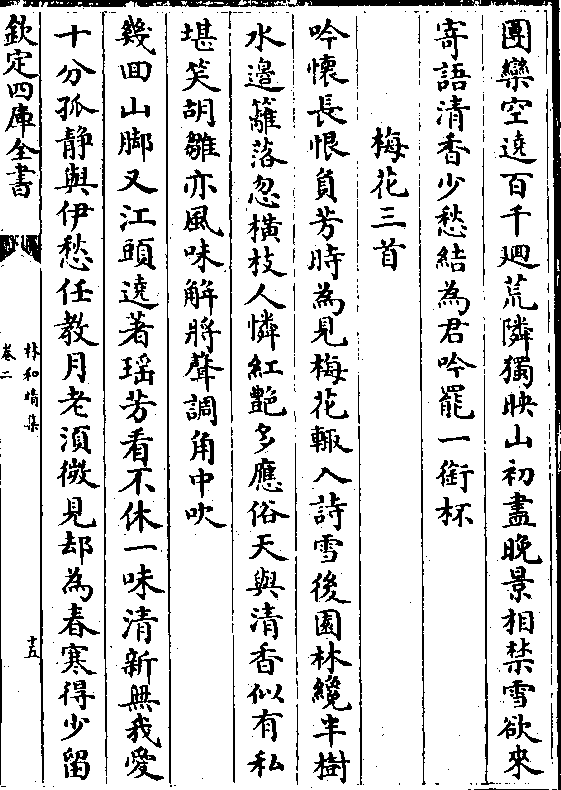 團欒空遶百千廻荒隣獨映山初盡晚景相禁雪欲來
寄語清香少愁結為君吟罷一銜杯
梅花三首
吟懷長恨負芳時為見梅花輙入詩雪後園林纔半樹
水邊籬落忽橫枝人憐紅艷多應俗天與清香似有私
堪笑胡雛亦風味解將聲調角中吹
幾回山脚又江頭遶著瑶芳看不休一味清新無我愛
十分孤静與伊愁任教月老湏微見却為春寒得少留
欽定四庫全書
林和靖集
卷二
十五